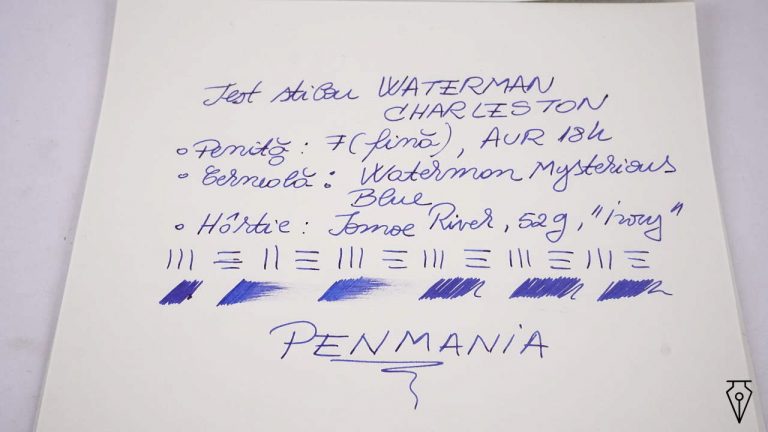 Test stilou WATERMAN
CHARLESTON
• Peniță: F (fină), AUR 18k
• Cerneală: Waterman Mysterious
Blue
• Hârtie: Tomoe River, 52g, "ivory"
PENMANIA